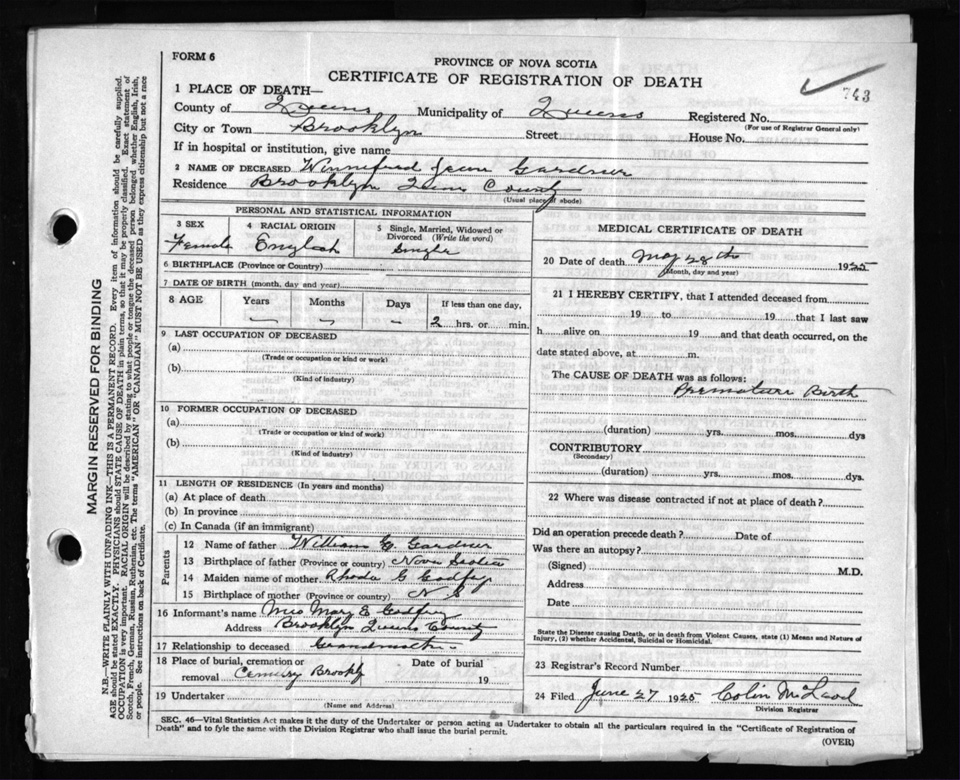 FORM 6
PROVINCE OF NOVA SCOTIA
CERTIFICATE OF REGISTRATION OF DEATH
743
1 PLACE OF DEATH—
County of Queens Municipality of Queens Registered No.
(For use of Registrar General only)
City or Town Brooklyn Street House No.
If in hospital or institution, give name
2 NAME OF DECEASED Winnifred Jean Gardner
Residence Brooklyn Queens County
(Usual place of abode)
PERSONAL AND STATISTICAL INFORMATION
3 SEX 4 RACIAL ORIGIN 5 Single, Married, Widowed or Divorced (Write the word)
Female English Single
6 BIRTHPLACE (Province or Country)
7 DATE OF BIRTH (month, day, and year)
8 AGE Years Months Days If less than one day,
— — — 2 hrs. or min.
9 LAST OCCUPATION OF DECEASED
(a)
(Trade or occupation or kind or work)
(b)
(Kind of industry)
10 FORMER OCCUPATION OF DECEASED
(a)
(Trade or occupation or kind of work)
(b)
(Kind of industry)
11 LENGTH OF RESIDENCE (In years and months)
(a) At place of death
(b) In province
(c) In Canada (if an immigrant)
Parents
12 Name of father William G. Gardner
13 Birthplace of father (Province or country) Nova Scotia
14 Maiden name of mother Rhoda G Godfrey
15 Birthplace of mother (Province or country) N S
16 Informant's name Mrs Mary E Godfrey
Address Brooklyn Queens County
17 Relationship to deceased Grandmother
18 Place of burial, cremation or removal Date of burial
Brookl 19
19 Undertaker
(Name and Address)
MEDICAL CERTIFICATE OF DEATH
20 Date of death May 28th 1925
(Month, day and year)
21 I HEREBY CERTIFY, that I attended deceased from
19 to 19 that I last saw
h alive on 19 and that death occurred, on the
date stated above, at m.
The CAUSE OF DEATH was as follows:
Premature Birth
(duration) yrs. mos. dys
CONTRIBUTORY
(Secondary)
(duration) yrs. mos. dys.
22 Where was disease contracted if not at place of death?
Did an operation precede death? Date of
Was there an autopsy?
(Signed) M.D.
Address
Date
State the Disease causing Death, or in death from Violent Causes, state (1) Means and Nature of
Injury, (2) whether Accidental, Suicidal or Homicidal.
23 Registrar's Record Number
24 Filed June 27 1925 Colin McLeod
Division Registrar
SEC. 46—Vital Statistics Act makes it the duty of the Undertaker or person acting as Undertaker to obtain all the particulars required in the "Certificate of Registration of
Death" and to fyle the same with the Division Registrar who shall issue the burial permit.
(OVER)
MARGIN RESERVED FOR BINDING
N.B.—WRITE PLAINLY WITH UNFADING INK—THIS IS A PERMANENT RECORD. Every item of information should be carefully supplied.
AGE should be stated EXACTLY. PHYSICIANS should STATE CAUSE OF DEATH in plain terms, so that it may be properly classified. Exact statement of
OCCUPATION is very important. RACIAL ORIGIN will be described by stating to what people or tongue the deceased person belonged whether English, Irish,
Scotch, French, German, Russian, Ruthenian, etc. The terms "AMERICAN" OR "CANADIAN" MUST NOT BE USED as they express citizenship but not a race
or people. See instructions on back of Certificate.